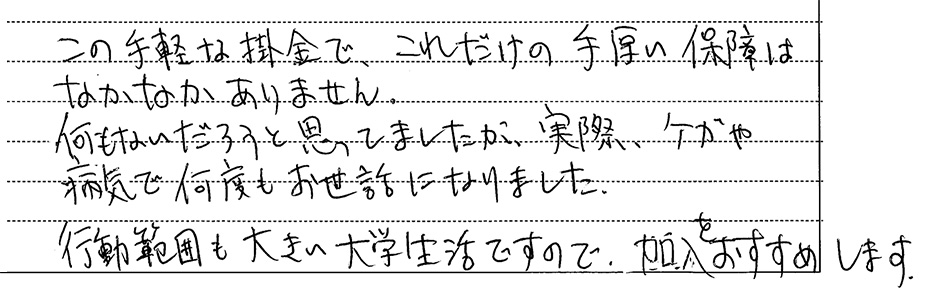 この手軽な掛金で、これだけの手厚い保障は
なかなかありません。
何もないだろうと思ってましたが、実際、ケガや
病気で何度もお世話になりました。
行動範囲も大きい大学生活ですので、加入をおすすめします。